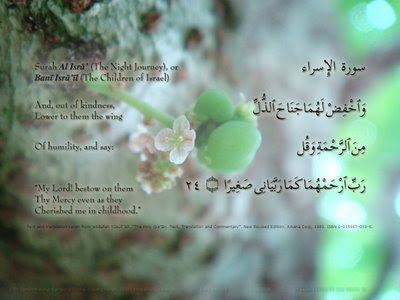 Surah Al Isrā' (The Night Journey), or
Banī Isrā'īl (The Children of Israel)
سورة الإسراء
And, out of kindness,
Lower to them the wing
وَٱخْفِضْ لَهُمَا جَنَاحَ ٱلذُّلِّ
Of humility, and say:
مِنَ ٱلرَّحْمَةِ وَقُل
"My Lord! bestow on them
Thy Mercy even as they
Cherished me in childhood."
رَّبِّ ٱرْحَمْهُمَا كَمَا رَبَّيَانِى صَغِيرًا ۝ ٢٤
Text and translation taken from Abdullah Yusuf Ali. "The Holy Qur'ān: Text, Translation and Commentary". New Revised Edition. Amana Corp. 1989.